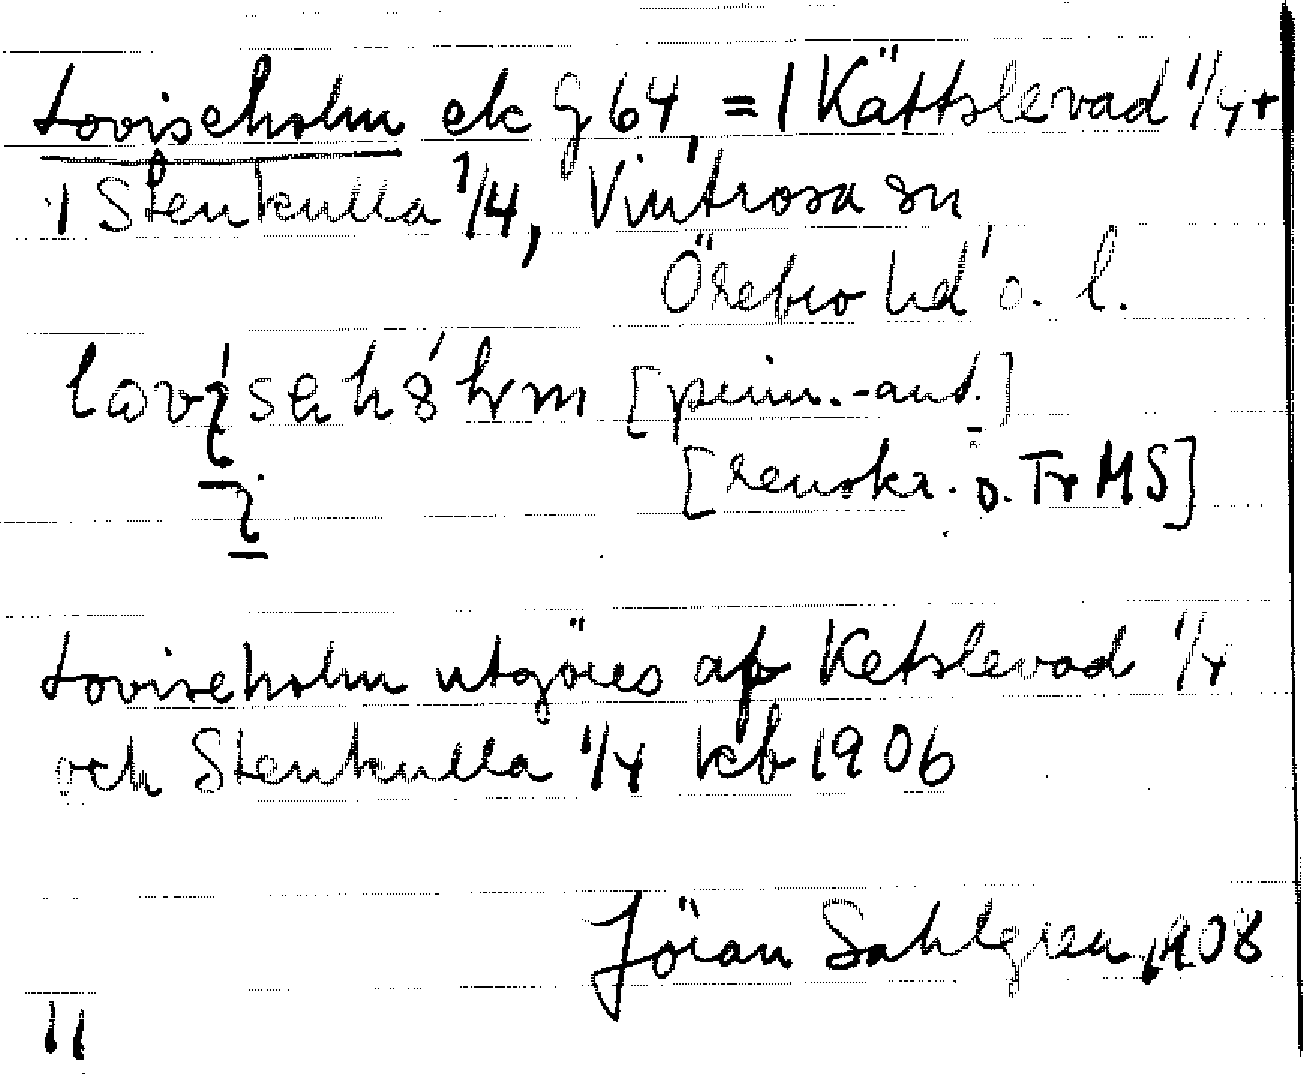 Loviseholm ek G 64, = 1 Kättslevad 1/4 +
1 Stenkulla 1/4, Vintrosa sn
Örebro hd o. l.
[penn.-ant.]
[renskr. o. Tr MS]
Loviseholm utgöres af Ketslevad 1/4
och Stenkulla 1/4 kb 1906
Jöran Sahlgren 1908
11